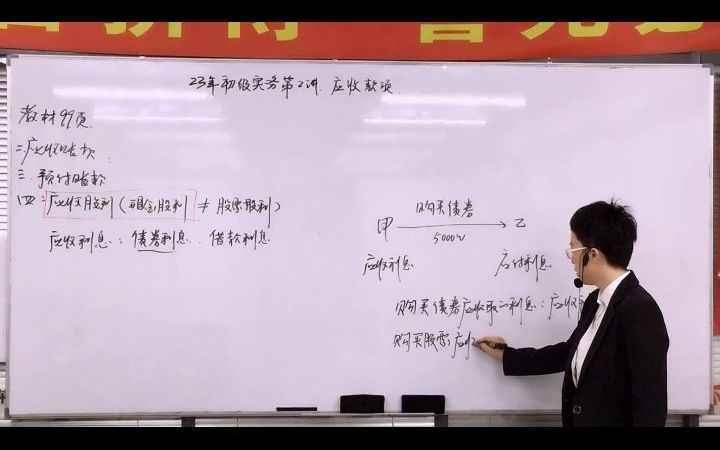 23年初级实务第2讲 应收款项
教材99页
二、应收账款
三、预付账款
四:应收股利(现金股利 ≠ 股票股利)
应收利息:债券利息、借款利息
购买债券
甲 → 乙
5000W
应收利息 应付利息
购买债券应收取的利息:应收
购买股票应收